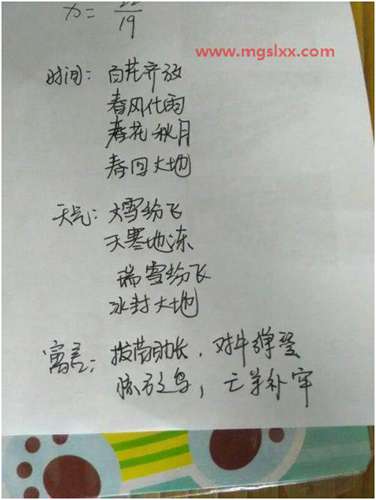 19
www.mgslxx.com
时间：百花齐放
春风化雨
春花秋月
春回大地
天气：大雪纷飞
天寒地冻
瑞雪纷飞
冰封大地
寓言：拔苗助长，对牛弹琴
惊弓之鸟，亡羊补牢